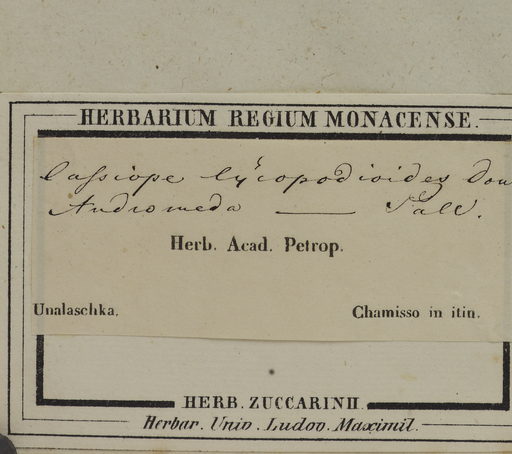 HERBARIUM REGIUM MONACENSE.
Cassiope lycopodioides Don
Andromeda ——— Pall.
Herb. Acad. Petrop.
Unalaschka.
Chamisso in itin.
HERB. ZUCCARINII.
Herbar. Univ. Ludov. Maximil.